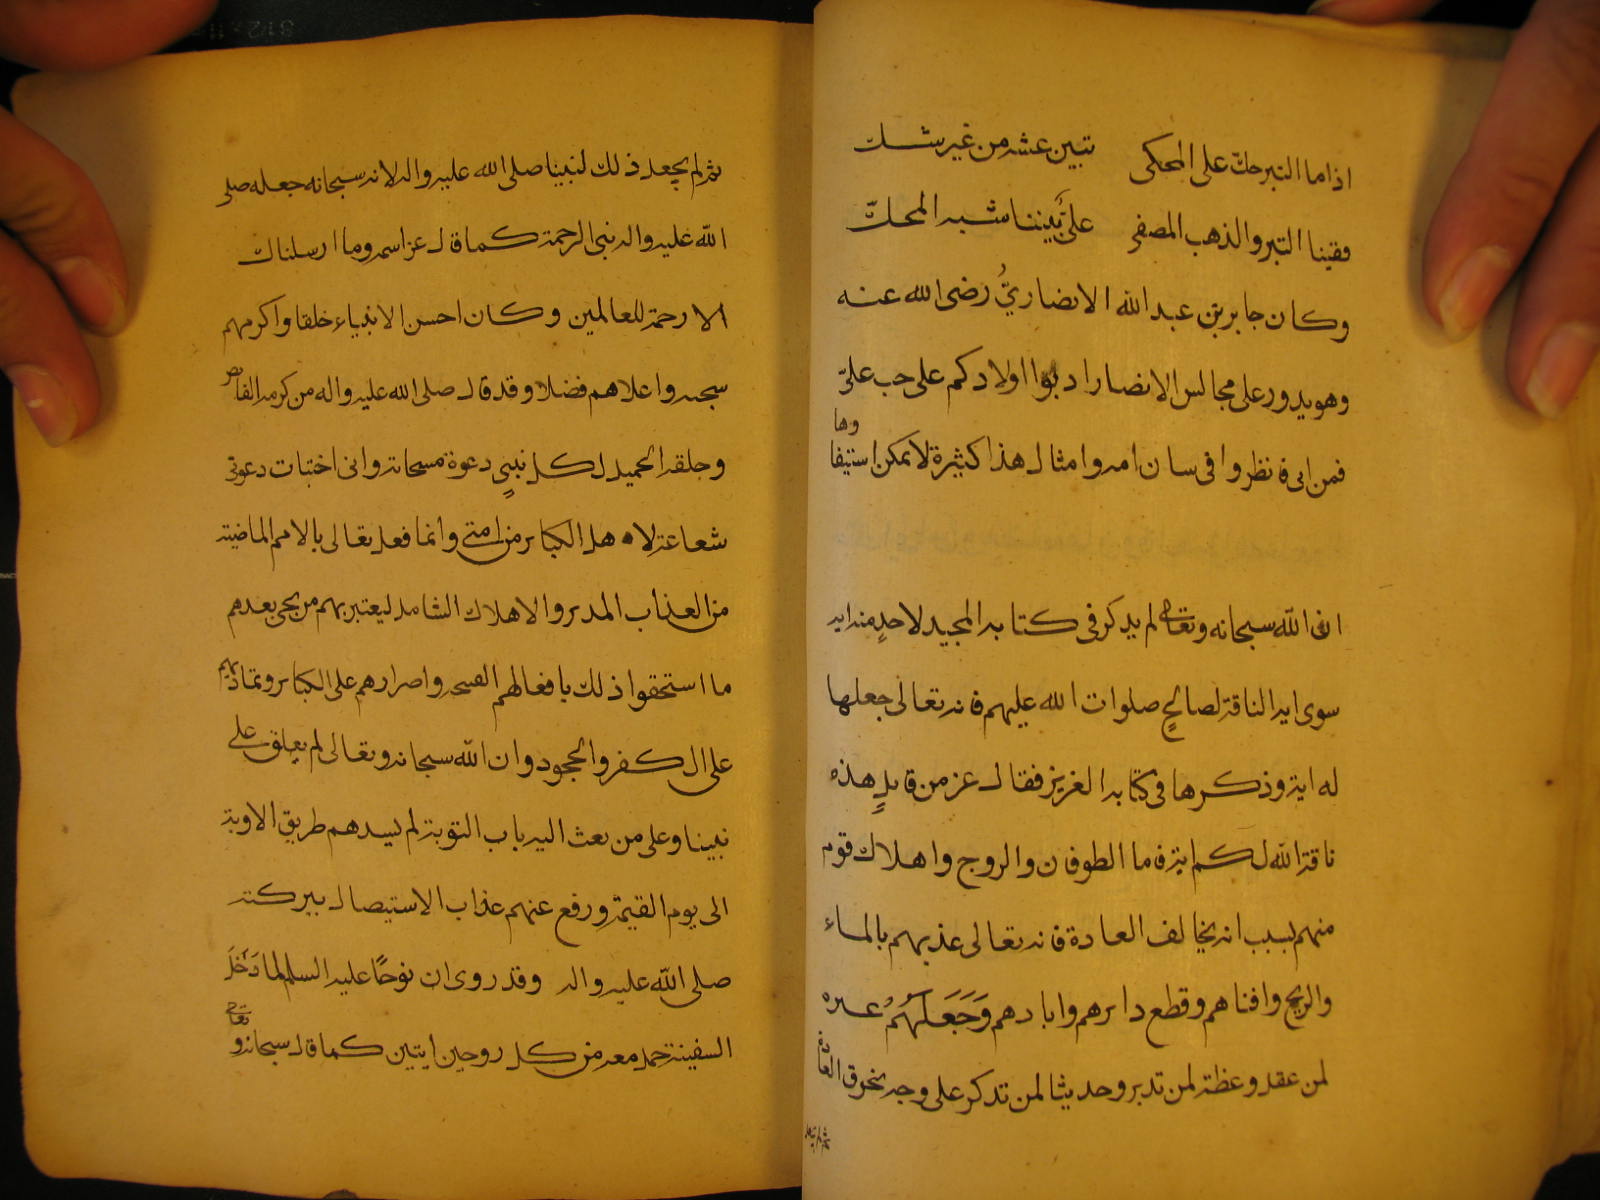 اذا ما التبر حك على المحكى تبين عشه من غير شك
ففينا التبر والذهب المصفى على بيننا شبه المحك
وكان جابر بن عبد الله الانصاري رضى الله عنه
وهو يدور على مجالس الانصار ادبوا اولادكم على حب علي
فمن ابى فانظروا فى سان امه وامثال هذا كثيرة لا يمكن استيفا
وها
ان الله سبحانه وتعالى لم يذكر فى كتابه المجيد لاحد منه ايه
سوى ايه الناقة لصالح صلوات الله عليهم فانه تعالى جعلها
له اية وذكرها فى كتابه العزيز فقال عز من قايل هذه
ناقة الله لكم اية فاما الطوفان والروح واهلاك قوم
منهم بسبب انه يخالف العادة فانه تعالى عذبهم بالماء
والريح وافناهم وقطع دابرهم وابادهم وجعلهم عبره
لمن عقد وعظة لمن تدبر وحديثا لمن تذكر على وجه يخرق العادة
ثم لم يجعل
ثم لم يجعل ذلك لنبينا صلى الله عليه واله لانه سبحانه جعله صلى
الله عليه واله نبى الرحمة كما قال عز اسمه وما ارسلناك
الا رحمة للعالمين وكان احسن الانبياء خلقا واكرمهم
سجيه واعلاهم فضلا وقد قال صلى الله عليه واله من كرمه الفايض
وخلقه الحميد لكل نبي دعوة مستجابة وانى اختبات دعوتى
شفاعة لاهل الكباير من امتى وانما فعل تعالى بالامم الماضية
من العذاب المدمر والاهلاك الشامل ليعتبر بهم من يجى بعدهم
ما استحقوا ذلك بافعالهم القبيحه واصرارهم على الكباير وتماديهم
على الكفر والجحود وان الله سبحانه وتعالى لم يغلق على
نبينا وعلى من بعث اليه باب التوبة لم يسدهم طريق الاوبة
الى يوم القيمة ورفع عنهم عذاب الاستيصال ببركته
صلى الله عليه واله وقد روى ان نوحا عليه السلم لما دخل
السفينة حمل معه من كل زوجين اثنين كما قال سبحانه و
تعالى